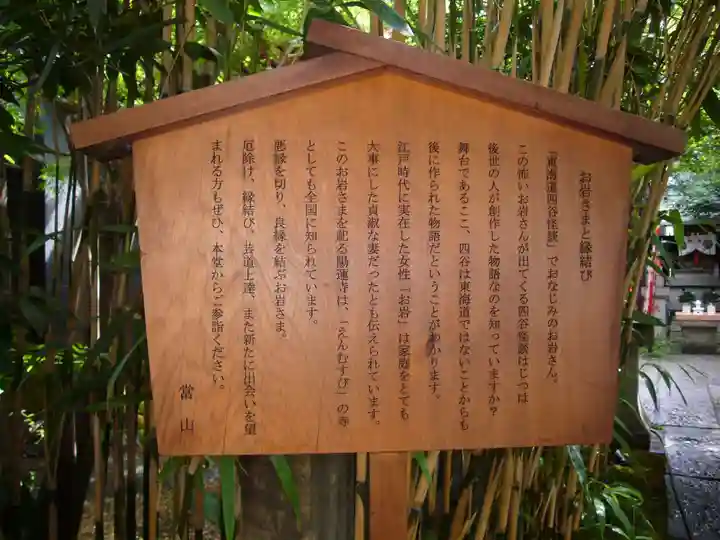 お岩さまと縁結び
「東海道四谷怪談」でおなじみのお岩さん。
この怖いお岩さんが出てくる四谷怪談はじつは
後世の人が創作した物語なのを知っていますか?
舞台であるここ、四谷は東海道ではないことからも
後に作られた物語だということがわかります。
江戸時代に実在した女性「お岩」は家庭をとても
大事にした貞淑な妻だったとも伝えられています。
このお岩さまを祀る陽運寺は、「えんむすび」の寺
としても全国に知られています。
悪縁を切り、良縁を結ぶお岩さま。
厄除け、縁結び。芸道上達、また新たに出会いを望
まれる方もぜひ、本堂からご参詣ください。
當山